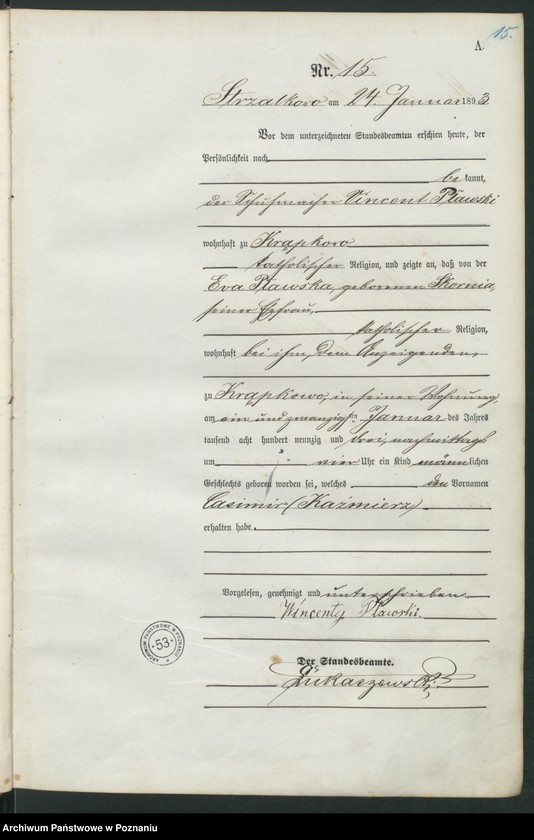 15.
A.
Nr. 15.
Strzalkowo am 24. Januar 1893
Vor dem unterzeichneten Standesbeamten erschien heute, der
Persönlichkeit nach
be kannt,
der Schuhmacher Vincent Pławski
wohnhaft zu Krąpkowo
katholischer Religion, und zeigte an, daß von der
Eva Pławska, geborenen Skornia,
seiner Ehefrau,
katholischer Religion,
wohnhaft bei ihm, dem Anzeigenden,
zu Krąpkowo, in seiner Wohnung,
am ein und zwanzigsten Januar des Jahres
tausend acht hundert neunzig und drei, nachmittags
um vier Uhr ein Kind männlichen
Geschlechts geboren worden sei, welches den Vornamen
Casimir (Kaźmierz)
erhalten habe.
Vorgelesen, genehmigt und unterschrieben
Wincenty Pławski.
Der Standesbeamte.
Łukaszewski
ARCHIWUM PAŃSTWOWE W POZNANIU
53
Archiwum Państwowe w Poznaniu